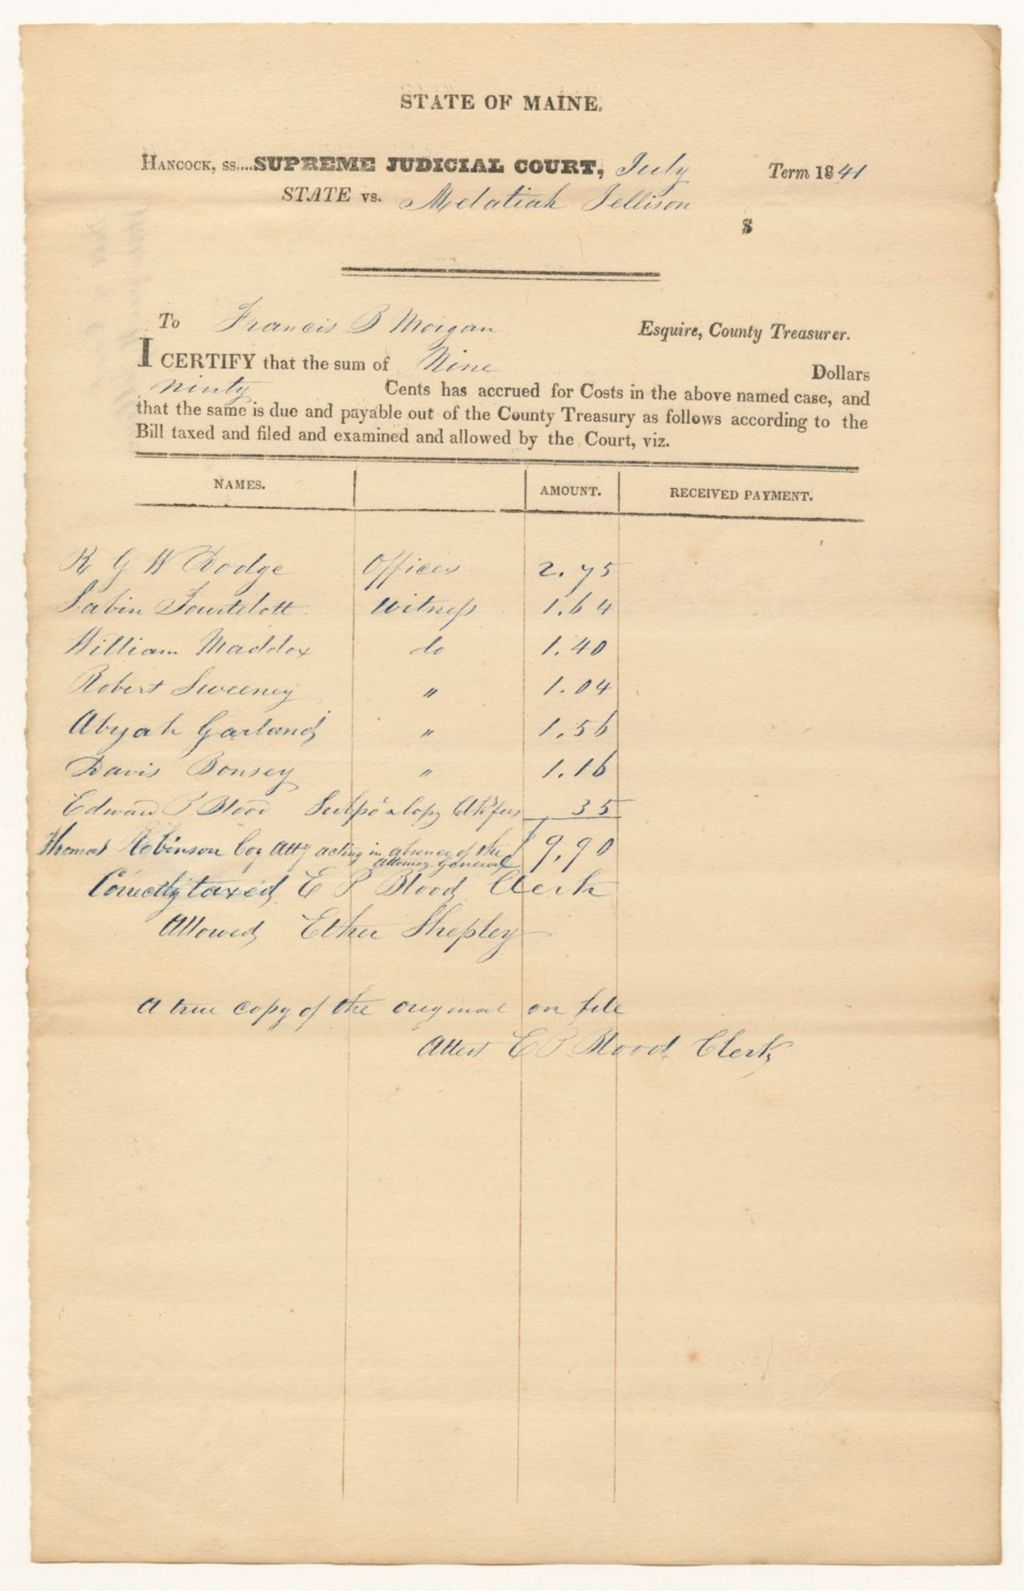 STATE OF MAINE.
HANCOCK, ss....SUPREME JUDICIAL COURT, July Term 1841
STATE vs. Melatiah Jellison
$
To Francis B Morgan Esquire, County Treasurer.
I CERTIFY that the sum of Nine Dollars
ninty Cents has accrued for Costs in the above named case, and
that the same is due and payable out of the County Treasury as follows according to the
Bill taxed and filed and examined and allowed by the Court, viz.
NAMES. AMOUNT. RECEIVED PAYMENT.
R G W Dodge Officer 2.75
Sabin Tourtelott Witness 1.64
William Maddox do 1.40
Robert Sweeney " 1.04
Abijah Garland " 1.56
Davis Bonsey " 1.16
Edward P Blood Subpo a Copy 35
Thomas Robinson Co Atty acting in absence of the $9.90
Attorney General
Correctly taxed E P Blood Clerk
Allowed Ether Shepley
A true copy of the original on file
Attest E P Blood Clerk